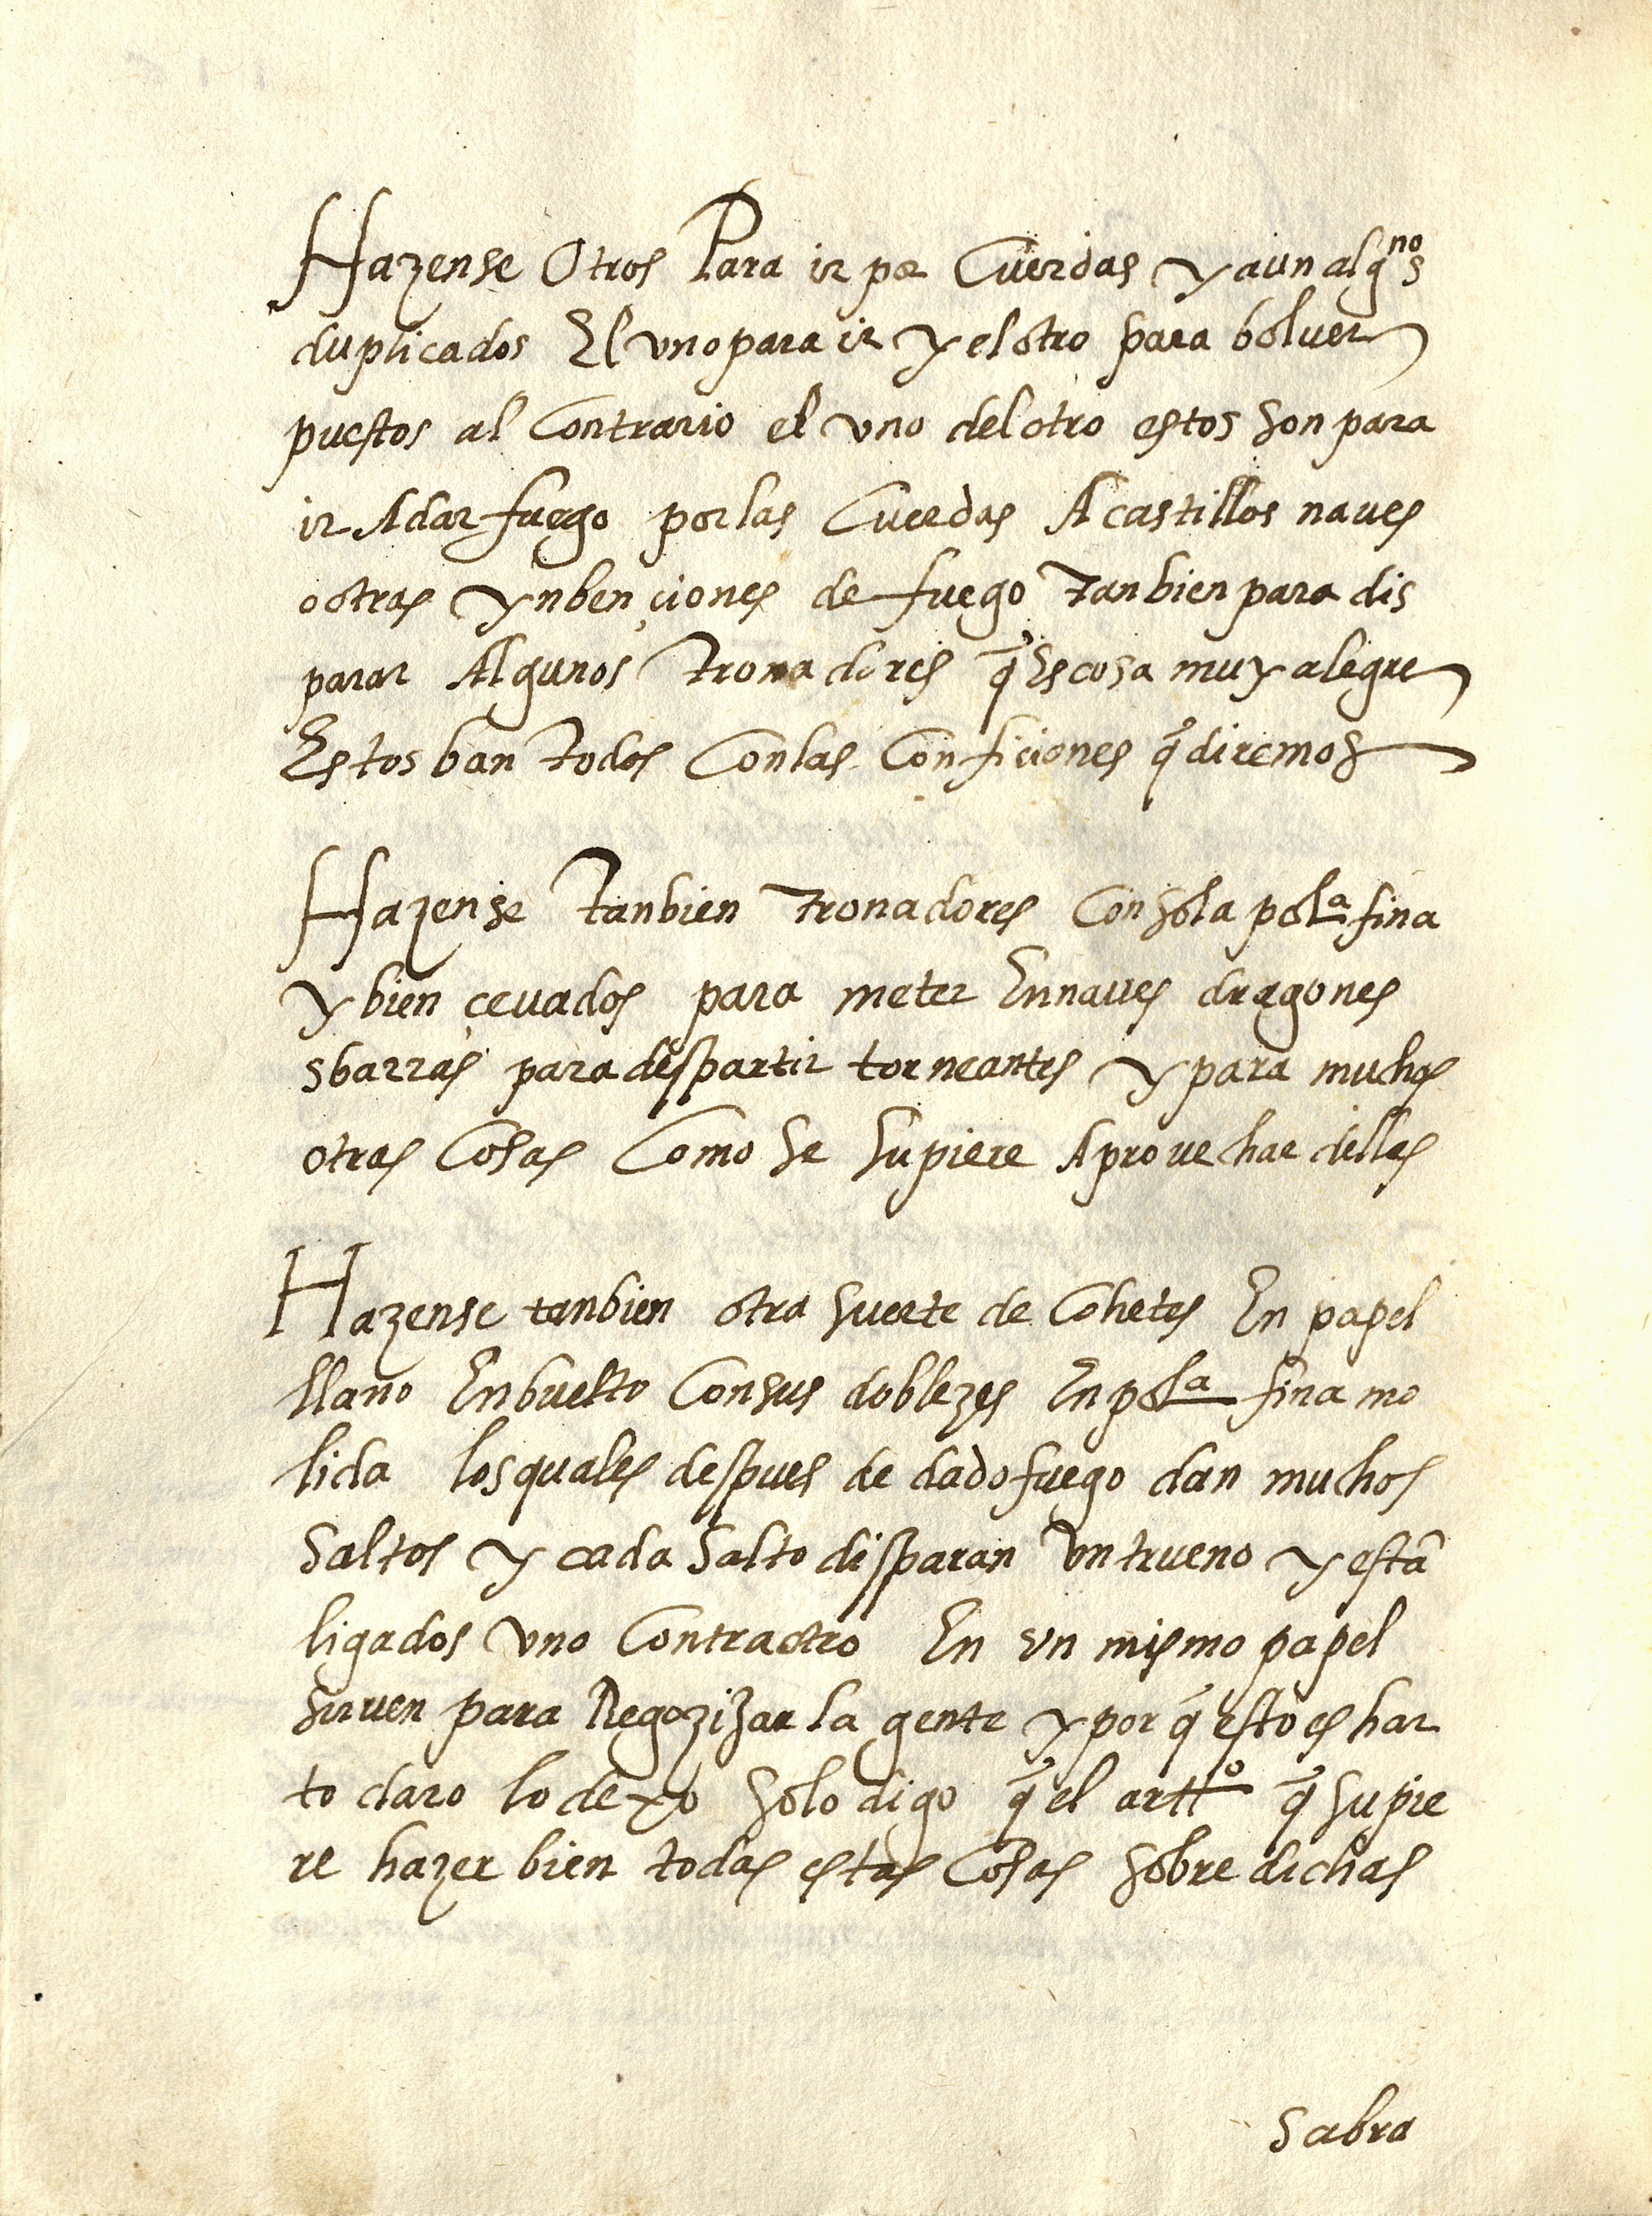 Hazense Otros Para ir por Cuerdas y aun alg^nos
duplicados El vno para ir y el otro para boluer
puestos al Contrario el vno del otro estos son para
ir Adar fuego por las Cuerdas A castillos naues
o otras ynbençiones de fuego Tanbien para dis
parar Algunos Tronadores q̃ Es cosa muy alegre
Estos ban todos Con las Conficiones q̃ diremos
Hazense Tanbien Tronadores Con sola pol^a fina
y bien çeuados para meter En naues dragones
sbarras para despartir torneantes y para muchas
otras Cosas Como se supiere Aprouechar dellas
Hazense tanbien otra suerte de Cohetes En papel
llano Enbuelto Con sus doblezes En pol^a fina mo
lida los quales despues de dado fuego dan muchos
saltos y cada salto disparan vn trueno y estã
ligados vno Contra otro En vn mismo papel
siruen para Regozisar la gente y por q̃ esto es har
to claro lo dexo solo digo q̃ el artt^o q̃ supie
re hazer bien todas estas Cosas sobre dichas
sabra